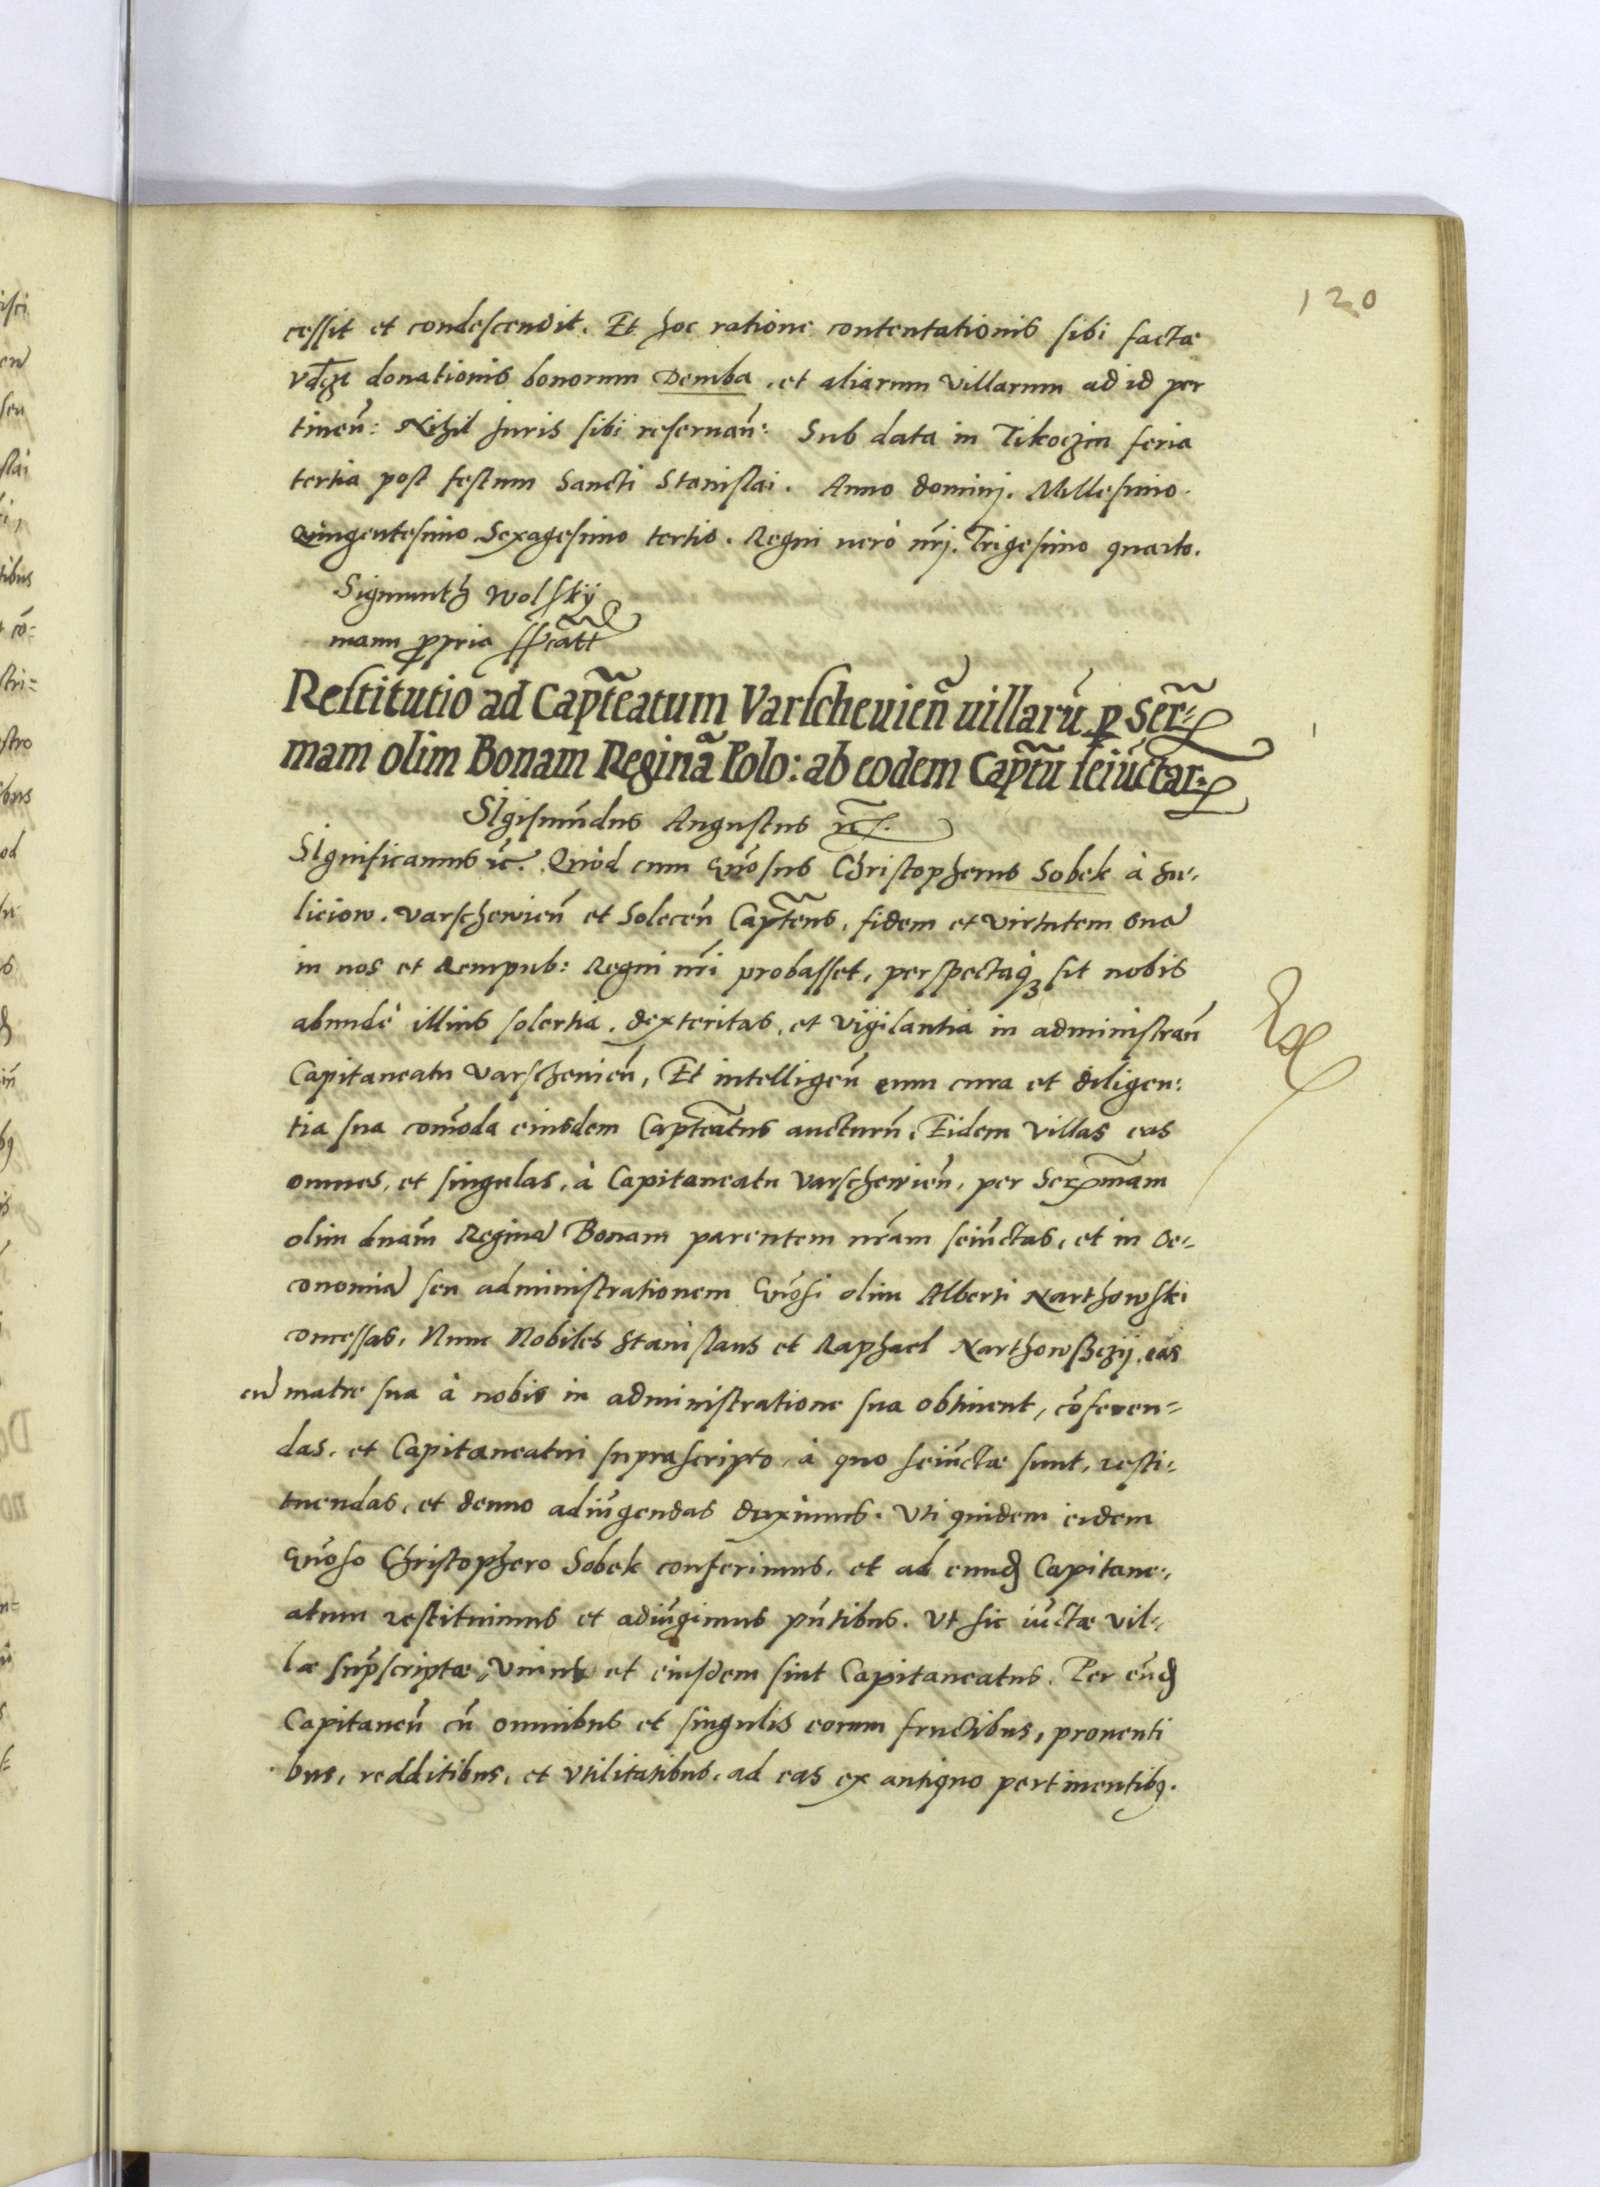 120
cessit et condescendit. Et hoc ratione contentationis sibi factæ
donationis bonorum Demba, et aliarum villarum ad id per
tineñ: Nihil Juris sibi reseruañ: Sub data in Tikoczin feria
tertia post festum Sancti Stanislai. Anno dominj. Millesimo.
Quingentesimo Sexagesimo tertio. Regni uerò nr̃j. Trigesimo quarto.
Sigmunth Wolsky
manu ꝓpria
Restitutio ad Capt̃eatum Varscheuieñ uillarũ p Ser:
mam olim Bonam Reginã Polo: ab eodem Capt̃u seiũctar:
SIgismũdus Augustus
SIgnificamus ꝛc̃. Quòd cum Gñosus Christopherus Sobek à Su:
liciow. Varschewieñ et Soleceñ Capt̃eus, fidem et virtutem suã
in nos et Rempub: Regni nr̃i probasset, perspectaqꝫ sit nobis
abundè illius solertia, dexteritas, et vigilantia in administrañ
Capitaneatu Varscheuieñ, Et intelligeñ eum cura et diligen:
tia sua com̃oda eiusdem Capt̃eatus aucturũ, Eidem villas eas
omnes, et singulas, à Capitaneatu Varschewieñ, per Serꝫmam
olim dnãm Reginã Bonam parentem nr̃am seiũctas, et in Oe:
conomiã seu administrationem Gñosi olim Alberti Narthowski
concessas, Nunc Nobiles Stanislaus et Raphael Narthowsczij, eas
cũ matre sua à nobis in administratione sua obtinent, cõferen=
das, et Capitaneatui suprascripto, à quo seiũctæ sunt, resti=
tuendas, et denuo adiũgendas duximus. Vti quidem eidem
Gñoso Christophero Sobek conferimus, et ad eund̃ Capitane:
atum restituimus et adiũgimus pñtibus. Vt sic iũctæ vil:
læ sup̃scriptæ, Vnius et eiusdem sint Capitaneatus. Per eũd̃
Capitaneũ cũ omnibus et singulis eorum fructibus, prouenti
bus, redditibus, et vtilitatibus, ad eas ex antiquo pertinentibꝫ.